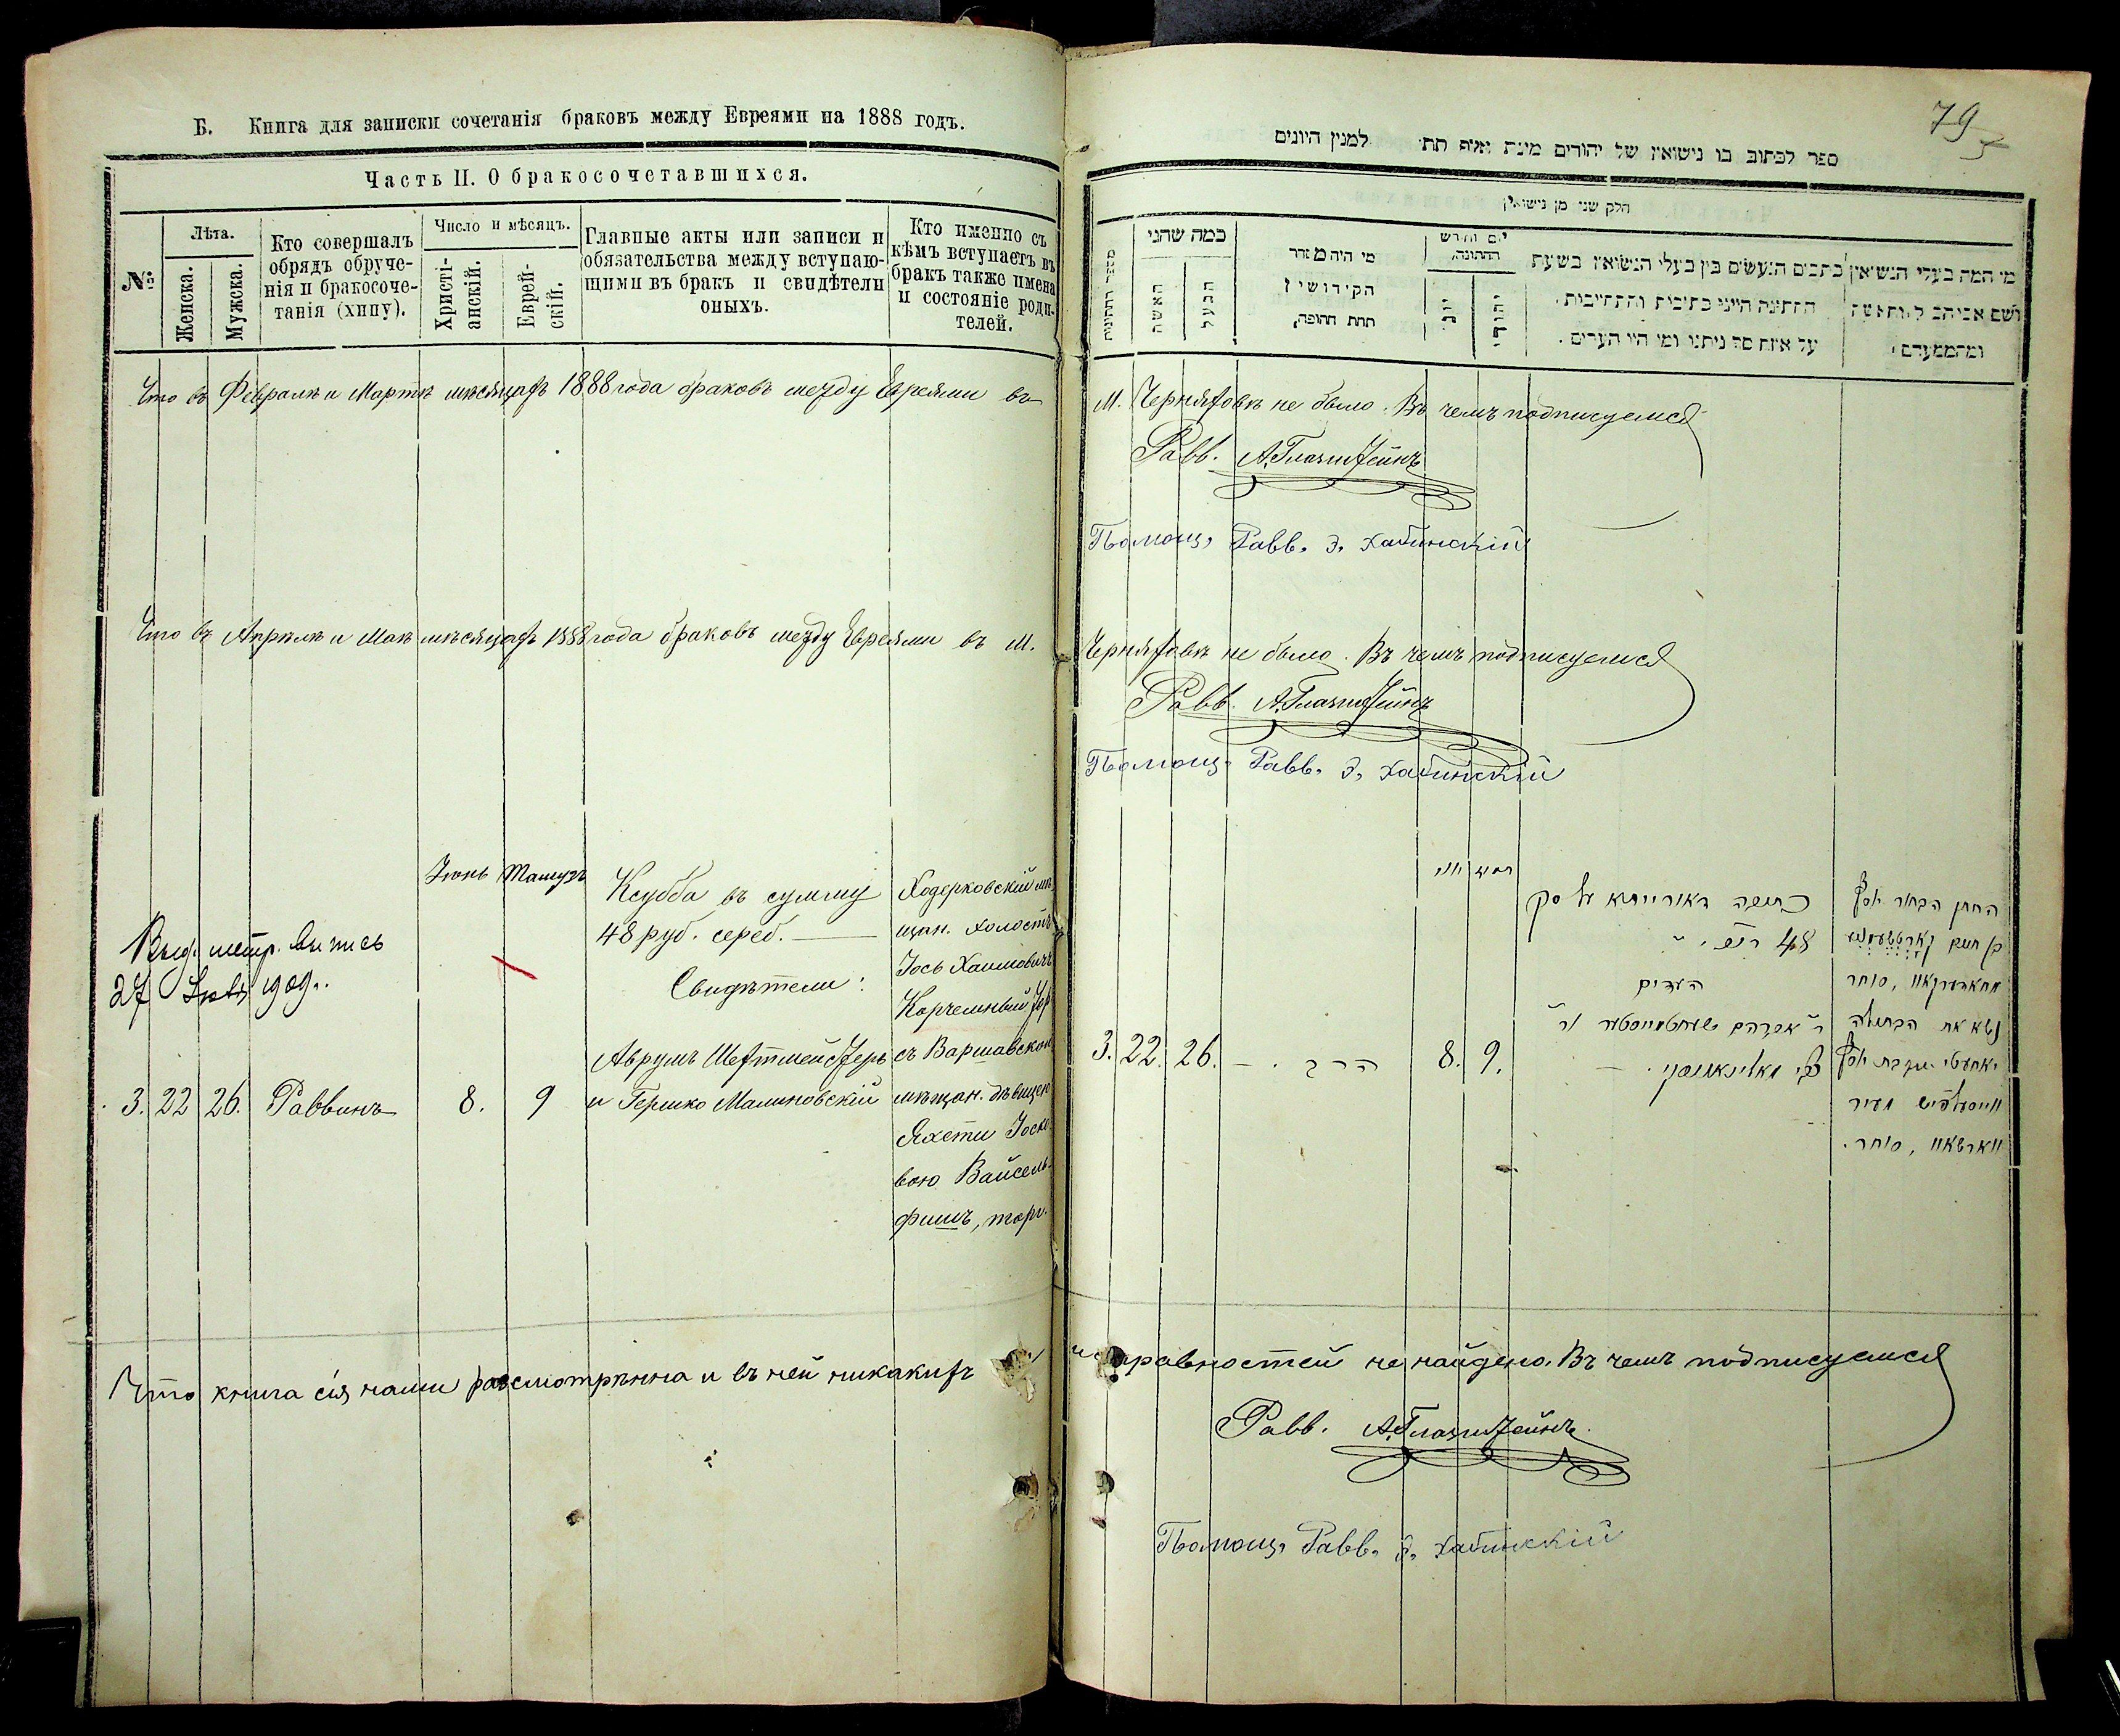 Б. Книга для записки сочетанія браковъ между Евреями на 1888 годъ.
Часть II. О бракосочетавшихся.
№
Лѣта.
Женска.
Мужска.
Кто совершалъ
обрядъ обруче-
нія и бракосоче-
танія (хипу).
Число и мѣсяцъ.
Христі-
анскій.
Еврей-
скій.
Главные акты или записи и
обязательства между вступаю-
щими въ бракъ и свидѣтели
оныхъ.
Кто именно съ
кѣмъ вступаетъ въ
бракъ также имена
и состояніе роди-
телей.
Что въ Февралѣ и Мартѣ мѣсяцахъ 1888 года браковъ между Евреями въ
Что въ Апрѣлѣ и Маѣ мѣсяцахъ 1888 года браковъ между Евреями въ М.
Выд. метр. выпись
27 1909 г.
Іюнь
Тамузъ
3. 22 26. Раввинъ 8. 9
Ксубба въ сумму
48 руб. сереб.
Свидѣтели:
Аврумъ
и Гершко Малиновскій
Ходорковскій мѣ
щан. холостъ
Іось Хаимовичъ
Корчемный
съ Варшавскою
мѣщан. дѣвицею
Яхети Іоско
вою Вайсель
фишъ, торг.
Что книга сія нами разсмотрѣнна и въ ней никакихъ
79
ספר לכתוב בו נישואין של יהודים מינת אלף תת למנין היונים
חלק שני מן נישואין
מספר החתונות
כמה שהני
האשה
הבעל
מי היה מסדר
הקידושין
תחת החופה,
יום וחודש
החתונה,
יוני
יהודי
כתבים הנעשים בין בעלי הנשואין בשעת
החתונה היינו כתובות והתחייבות.
על איזה סך ניתנו ומי היו העדים.
מי המה בעלי הנשואין
ושם אביהם
ומהמעמדם
М. Черняховѣ не было. Въ чемъ подписуемся
Равв. А. Глазштейнъ
Помощ. Равв. Э. Хабинскій
Черняховѣ не было. Въ чемъ подписуемся
Равв. А. Глазштейнъ
Помощ. Равв. Э. Хабинскій
3. 22. 26. הרב 8. 9.
כתובה דאורייתא על סך
48 רו״כ
העדים
החתן הבחור יוסף
סוחר
נשא את הבתולה
ווארשאוו, סוחר.
исправностей не найдено. Въ чемъ подписуемся
Равв. А. Глазштейнъ.
Помощ. Равв. Э. Хабинскій